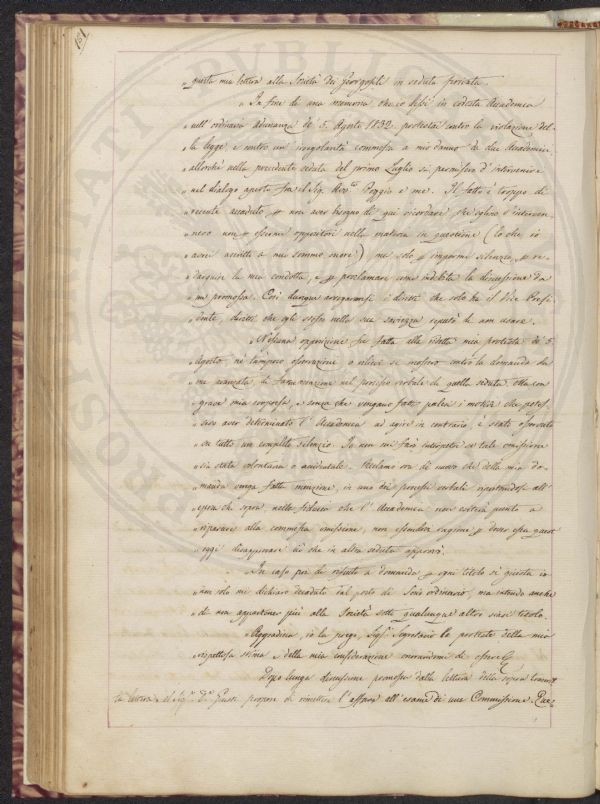 151
„ questa mia lettera alla Società dei Georgofili in seduta privata.
„ In fine di una memoria che io lessi in codesta Accademia
„ nell'ordinaria adunanza de' 5. Agosto 1832. protestai contro la violazione del-
„ la legge, e contro un'irregolarità commessa a mio danno da due Accademici
„ allorchè nella precedente seduta del primo Luglio si permisero d'intervenire
„ nel dialogo aperto fra il Sig. Avv. Poggi e me. Il fatto è troppo di
„ recente accaduto, p non aver bisogno di qui ricordare che eglino s'interven
„ nero non p essermi oppositori nella materia in questione (lo che io
„ avrei ascritto a mio sommo onore) ma solo p impormi silenzio, p re-
„ darguire la mia condotta, e p proclamare come indebita la discussione da
„ me promossa. Così dunque arrogaronsi i diritti che solo ha il Vice Presi-
„ dente, diritti che egli stesso nella sua saviezza reputò di non usare.
„ Nessuna opposizione fu fatta alla ridetta mia protesta de' 5.
„ Agosto, nè tampoco osservazione o rilievi si mossero contro la domanda da
„ me avanzata, di farne menzione nel processo verbale di quella seduta. Ma con
„ grave mia sorpresa, e senza che vengano fatti palesi i motivi che potes-
„ sero aver determinato l'Accademia ad agire in contrario, è stato osservato
„ su tutto un completo silenzio. Io non mi farò interprete se tale omissione
„ sia stata volontaria o accidentale. Reclamo ora di nuovo che della mia do-
„ manda venga fatta menzione, in uno dei processi verbali riportandosi all'
„ epoca di sopra nella fiducia che l'Accademia non esiterà punto a
„ riparare alla commessa omissione, non essendovi ragione p dover essa quest'
„ oggi disapprovare ciò che in altra seduta approvò.
„ In caso poi di rifiuto a domanda p ogni titolo sì giusta io
„ non solo mi dichiaro decaduto dal posto di Socio ordinario, ma intendo anche
„ di non appartenere più alla Società sotto qualunque altro siasi titolo.
„ Aggradisca, io la prego, Sig. Segretario le proteste della mia
„ rispettosa stima e della mia considerazione onorandomi di essere
Dopo lunga discussione promossa dalla lettura della sopra
ta lettera, il Sig. D. Giusti propose di rimettere l'affare all'esame di una Commissione. Que-